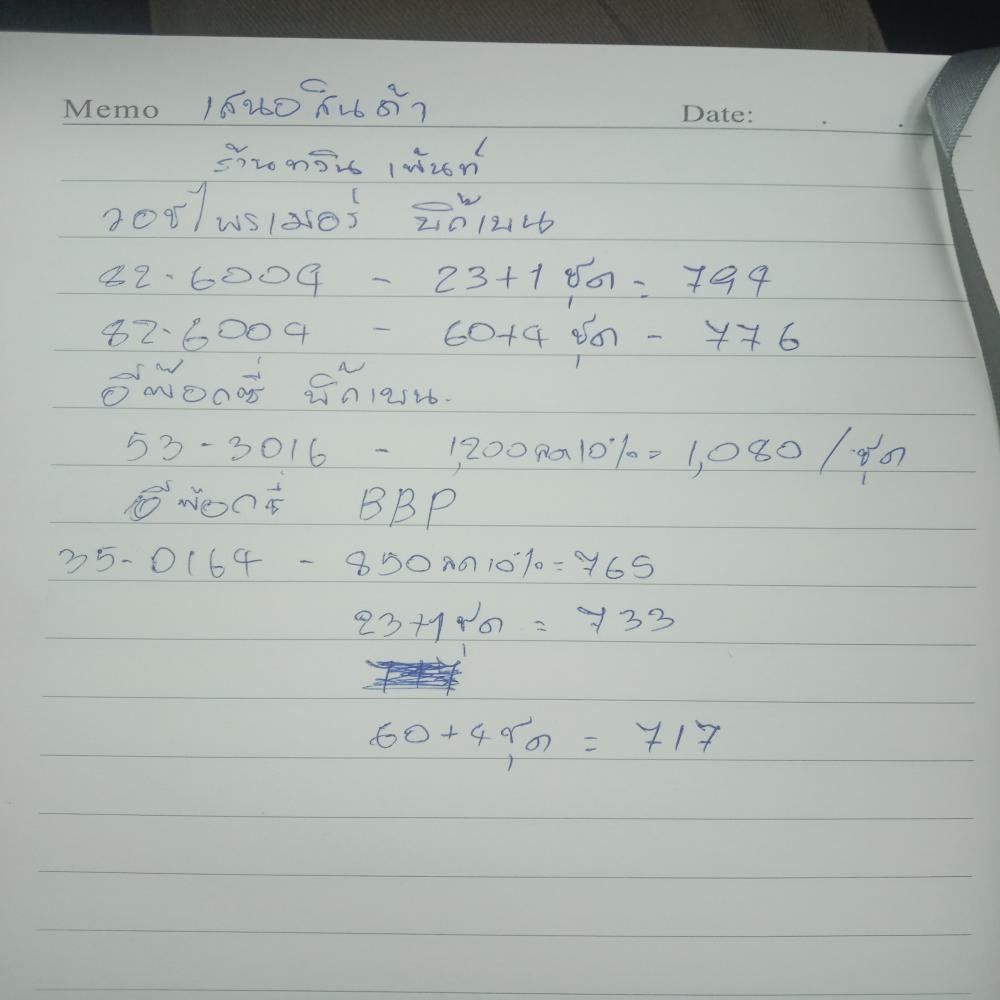 Memo เสนอสินค้า Date: . .
ร้านทวิน เพ้นท์
วอชไพรเมอร์ บิ๊กเบน
82-6009 - 23+1 ชุด = 794
82-6009 - 60+4 ชุด - 776
อีพ๊อกซี่ บิ๊กเบน.
53-3016 - 1,200 ลด 10% = 1,080 / ชุด
อีพ๊อกซี่ BBP
35-0164 - 850 ลด 10% = 765
23+1 ชุด = 733
60+4 ชุด = 717